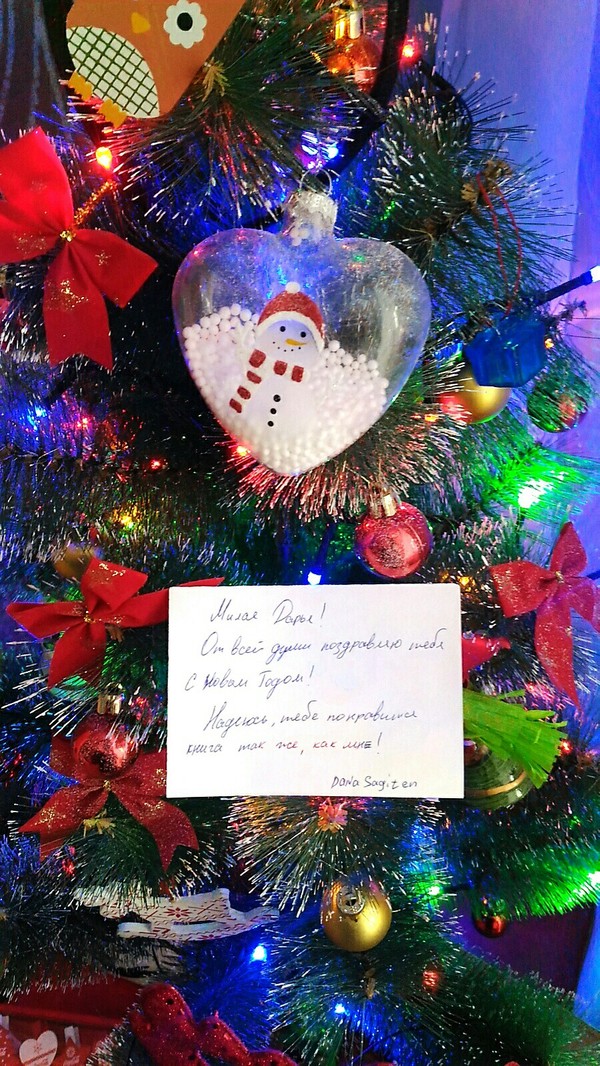 Милая Дарья!
От всей души поздравляю тебя
с Новым Годом!
Надеюсь, тебе понравится
книга так же, как мне!
Dana Sagiten